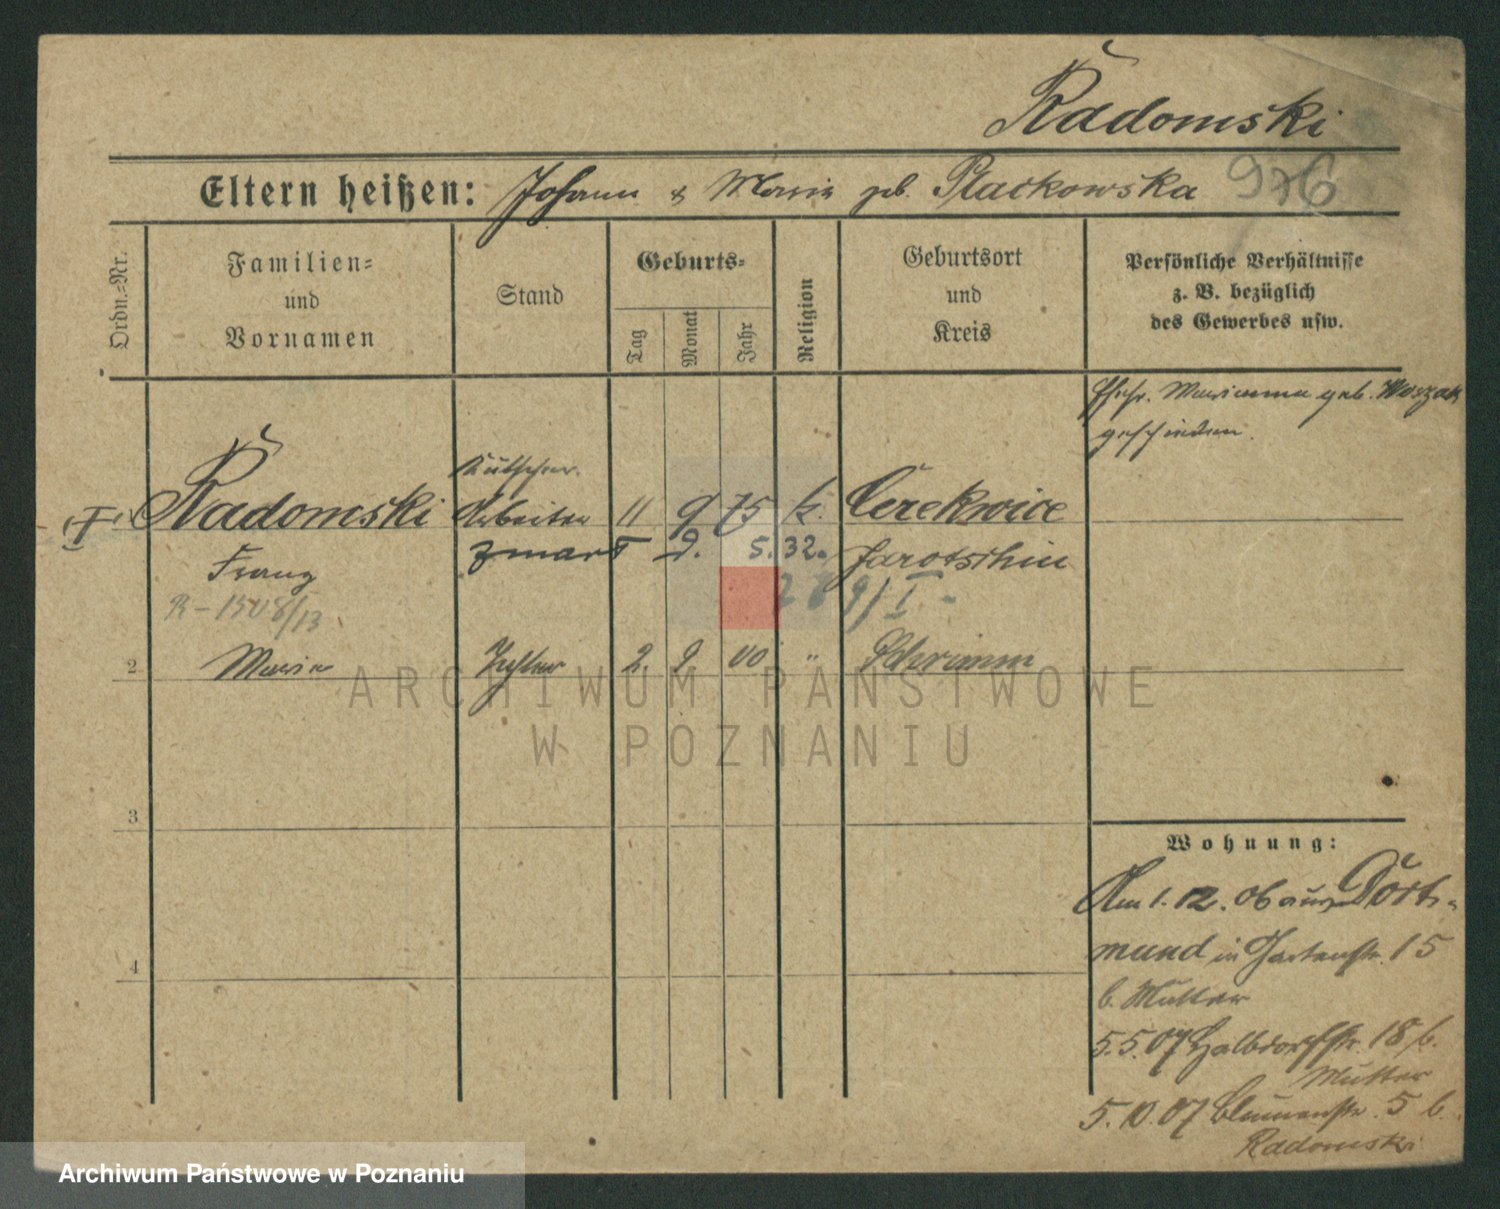 Radomski
Eltern heißen: Johann & Maria geb. Plackowska 976
Ordn.-Nr.
Familien-
und
Vornamen
Stand
Geburts-
Tag
Monat
Jahr
Religion
Geburtsort
und
Kreis
Persönliche Verhältnisse
z. B. bezüglich
des Gewerbes usw.
Ehefr. Marianna geb. Woszak
geschieden.
Kutscher.
I Radomski Arbeiter 11 9 75 k. Cerekwice
Franz zmarł 9. 5. 32. Jarotschin
R-1508/13
2 Maria Tochter 2. 9 00 " Schrimm
ARCHIWUM PAŃSTWOWE
W POZNANIU
3
Wohnung:
Am 1. 12. 06 aus Dort-
mund in Gartenstr. 15
b. Mutter
4
5.5.07 Halbdorfstr. 18 b.
Mutter
5.10.07 Blumenstr. 5 b.
Radomski
Archiwum Państwowe w Poznaniu